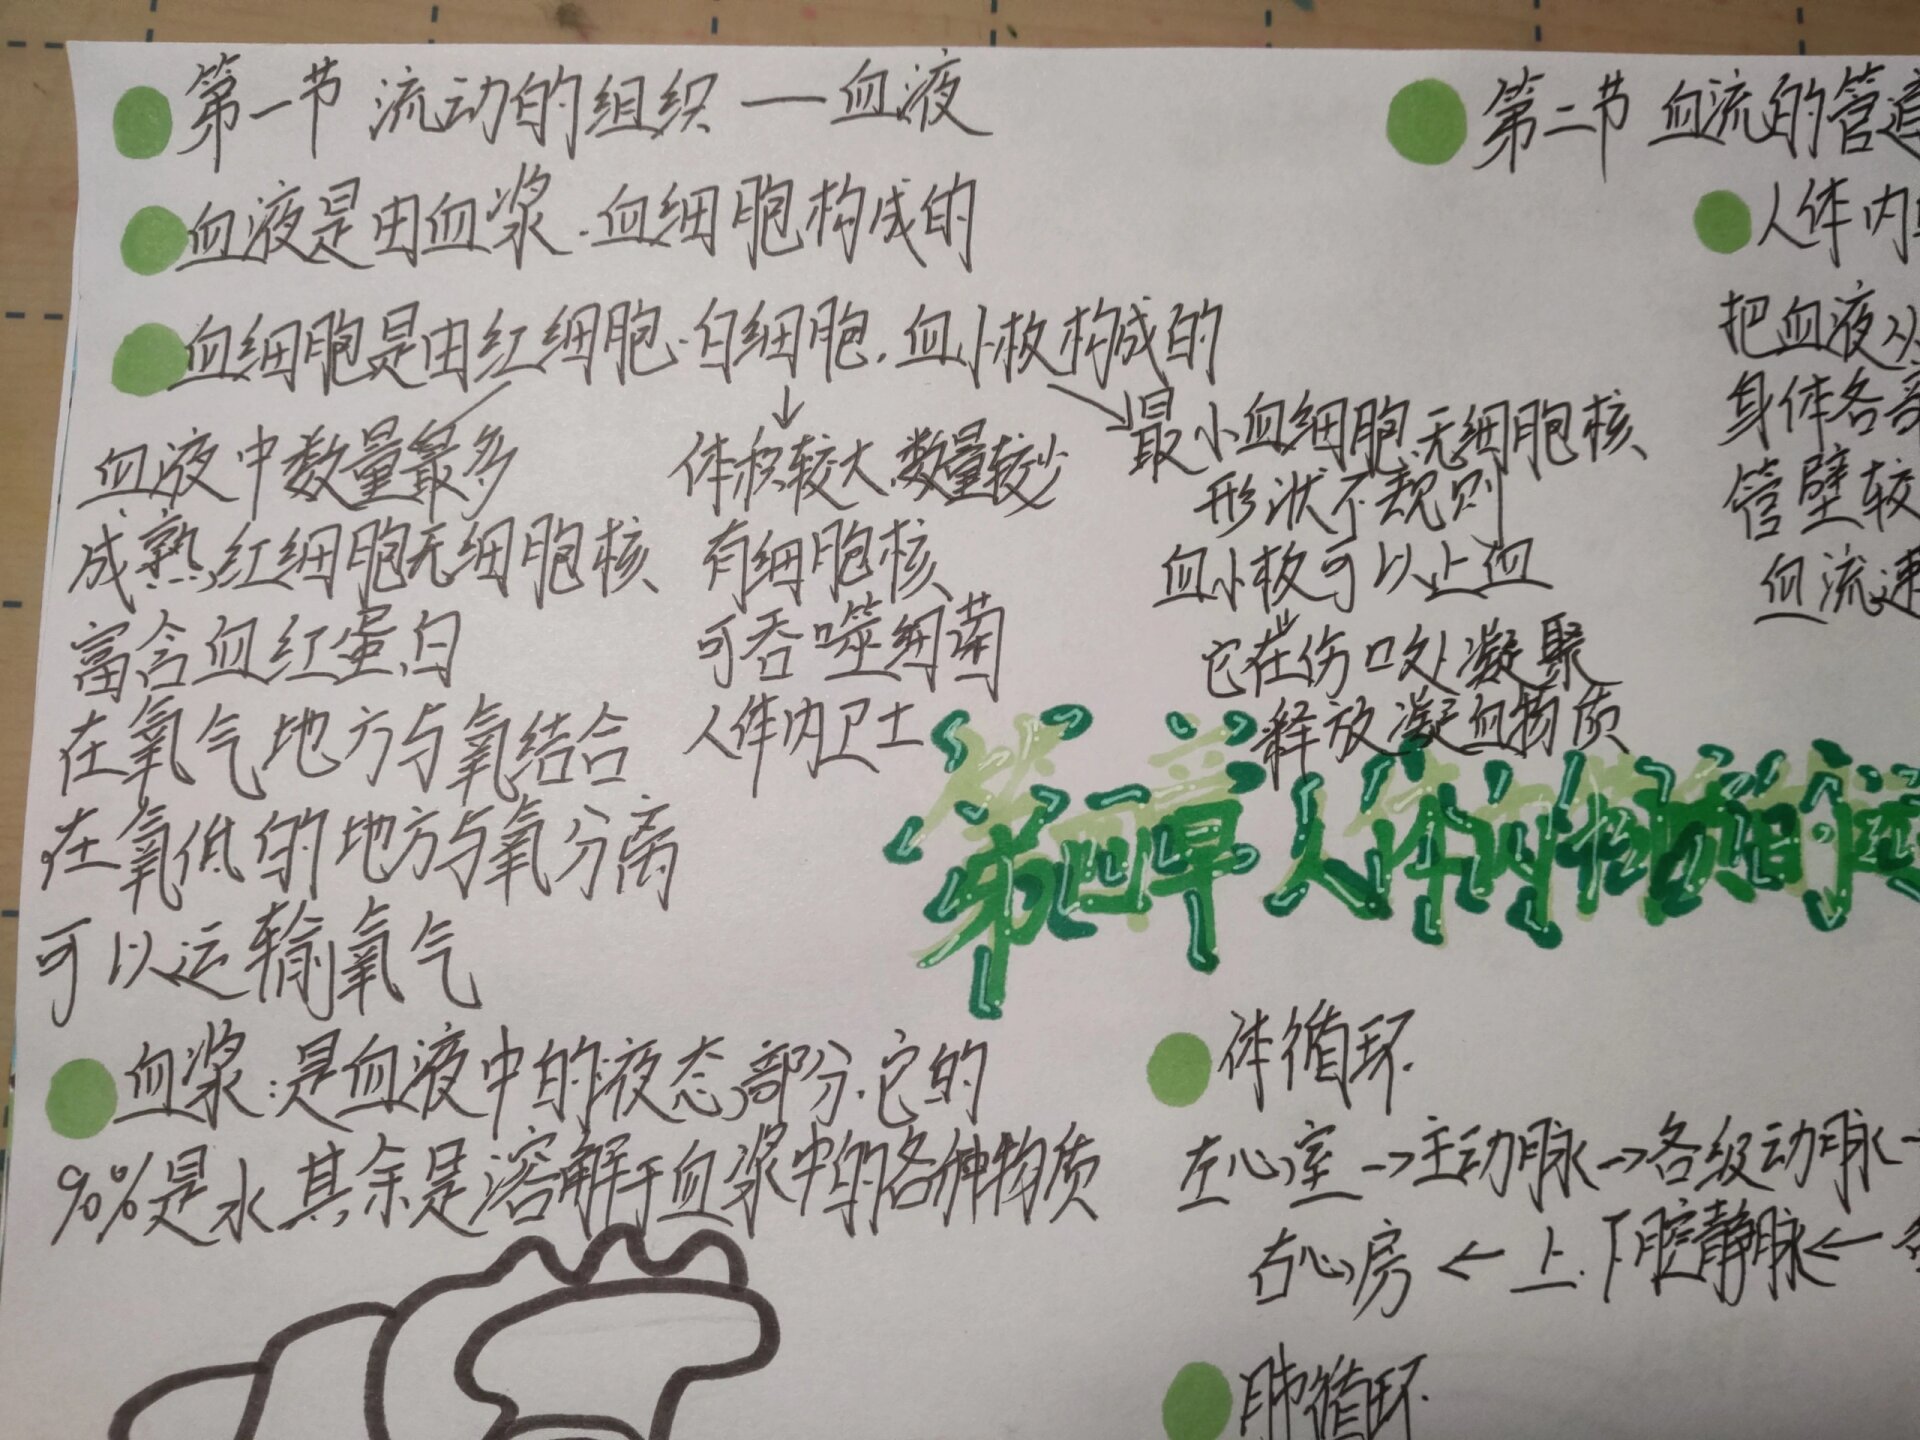 第一节 流动的组织 — 血液
血液是由血浆.血细胞构成的
血细胞是由红细胞.白细胞.血小板构成的
血液中数量最多
成熟红细胞无细胞核
富含血红蛋白
在氧气地方与氧结合
在氧低的地方与氧分离
可以运输氧气
体积较大数量较少
有细胞核
可吞噬细菌
人体内卫士
最小血细胞无细胞核
形状不规则
血小板可以止血
它在伤口处凝聚
释放凝血物质
血浆:是血液中的液态部分.它的
90%是水其余是溶解于血浆中的各种物质
第四章 人体内物质的运
第二节 血流的管道
人体内
把血液从
身体各
管壁较
血流速
体循环
左心室→主动脉→各级动脉→
右心房←上.下腔静脉←各
肺循环